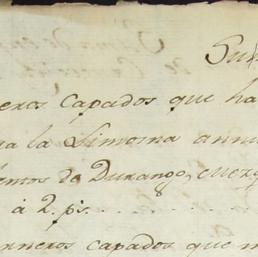 Su
eros capados que ha
ra la Limosna annu
entos de Durango, cuerp
à 2. ps.
nneros capados que m